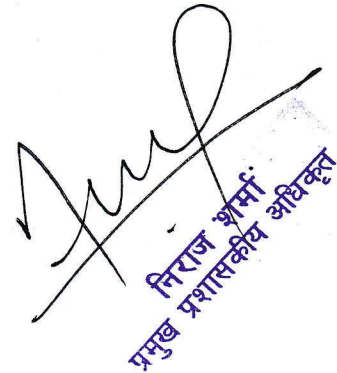 निराज शर्मा
प्रमुख प्रशासकीय अधिकृत